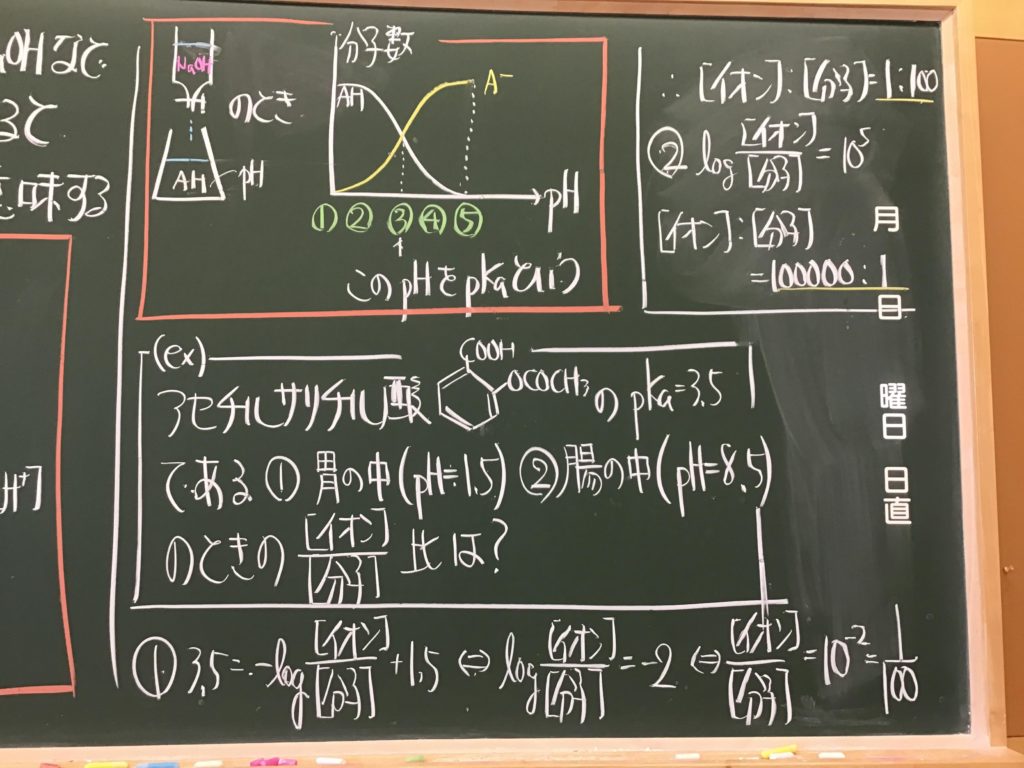 OHなど
ると
意味する
H⁺]
NaOH
のとき
AH
pH
分子数
AH
A⁻
pH
① ② ③ ④ ⑤
このpHをpKaという
∴ [イオン]:[分子]=1:100
② log [イオン]/[分子] = 10⁵
[イオン]:[分子]
=100000:1
月
日
曜日
日直
(ex)
アセチルサリチル酸 COOH OCOCH₃ の pKa=3.5
である ① 胃の中(pH=1.5) ② 腸の中(pH=8.5)
のときの [イオン]/[分子] 比は?
① 3.5=-log [イオン]/[分子] +1.5 ⇔ log [イオン]/[分子] =-2 ⇔ [イオン]/[分子] =10⁻²= 1/100